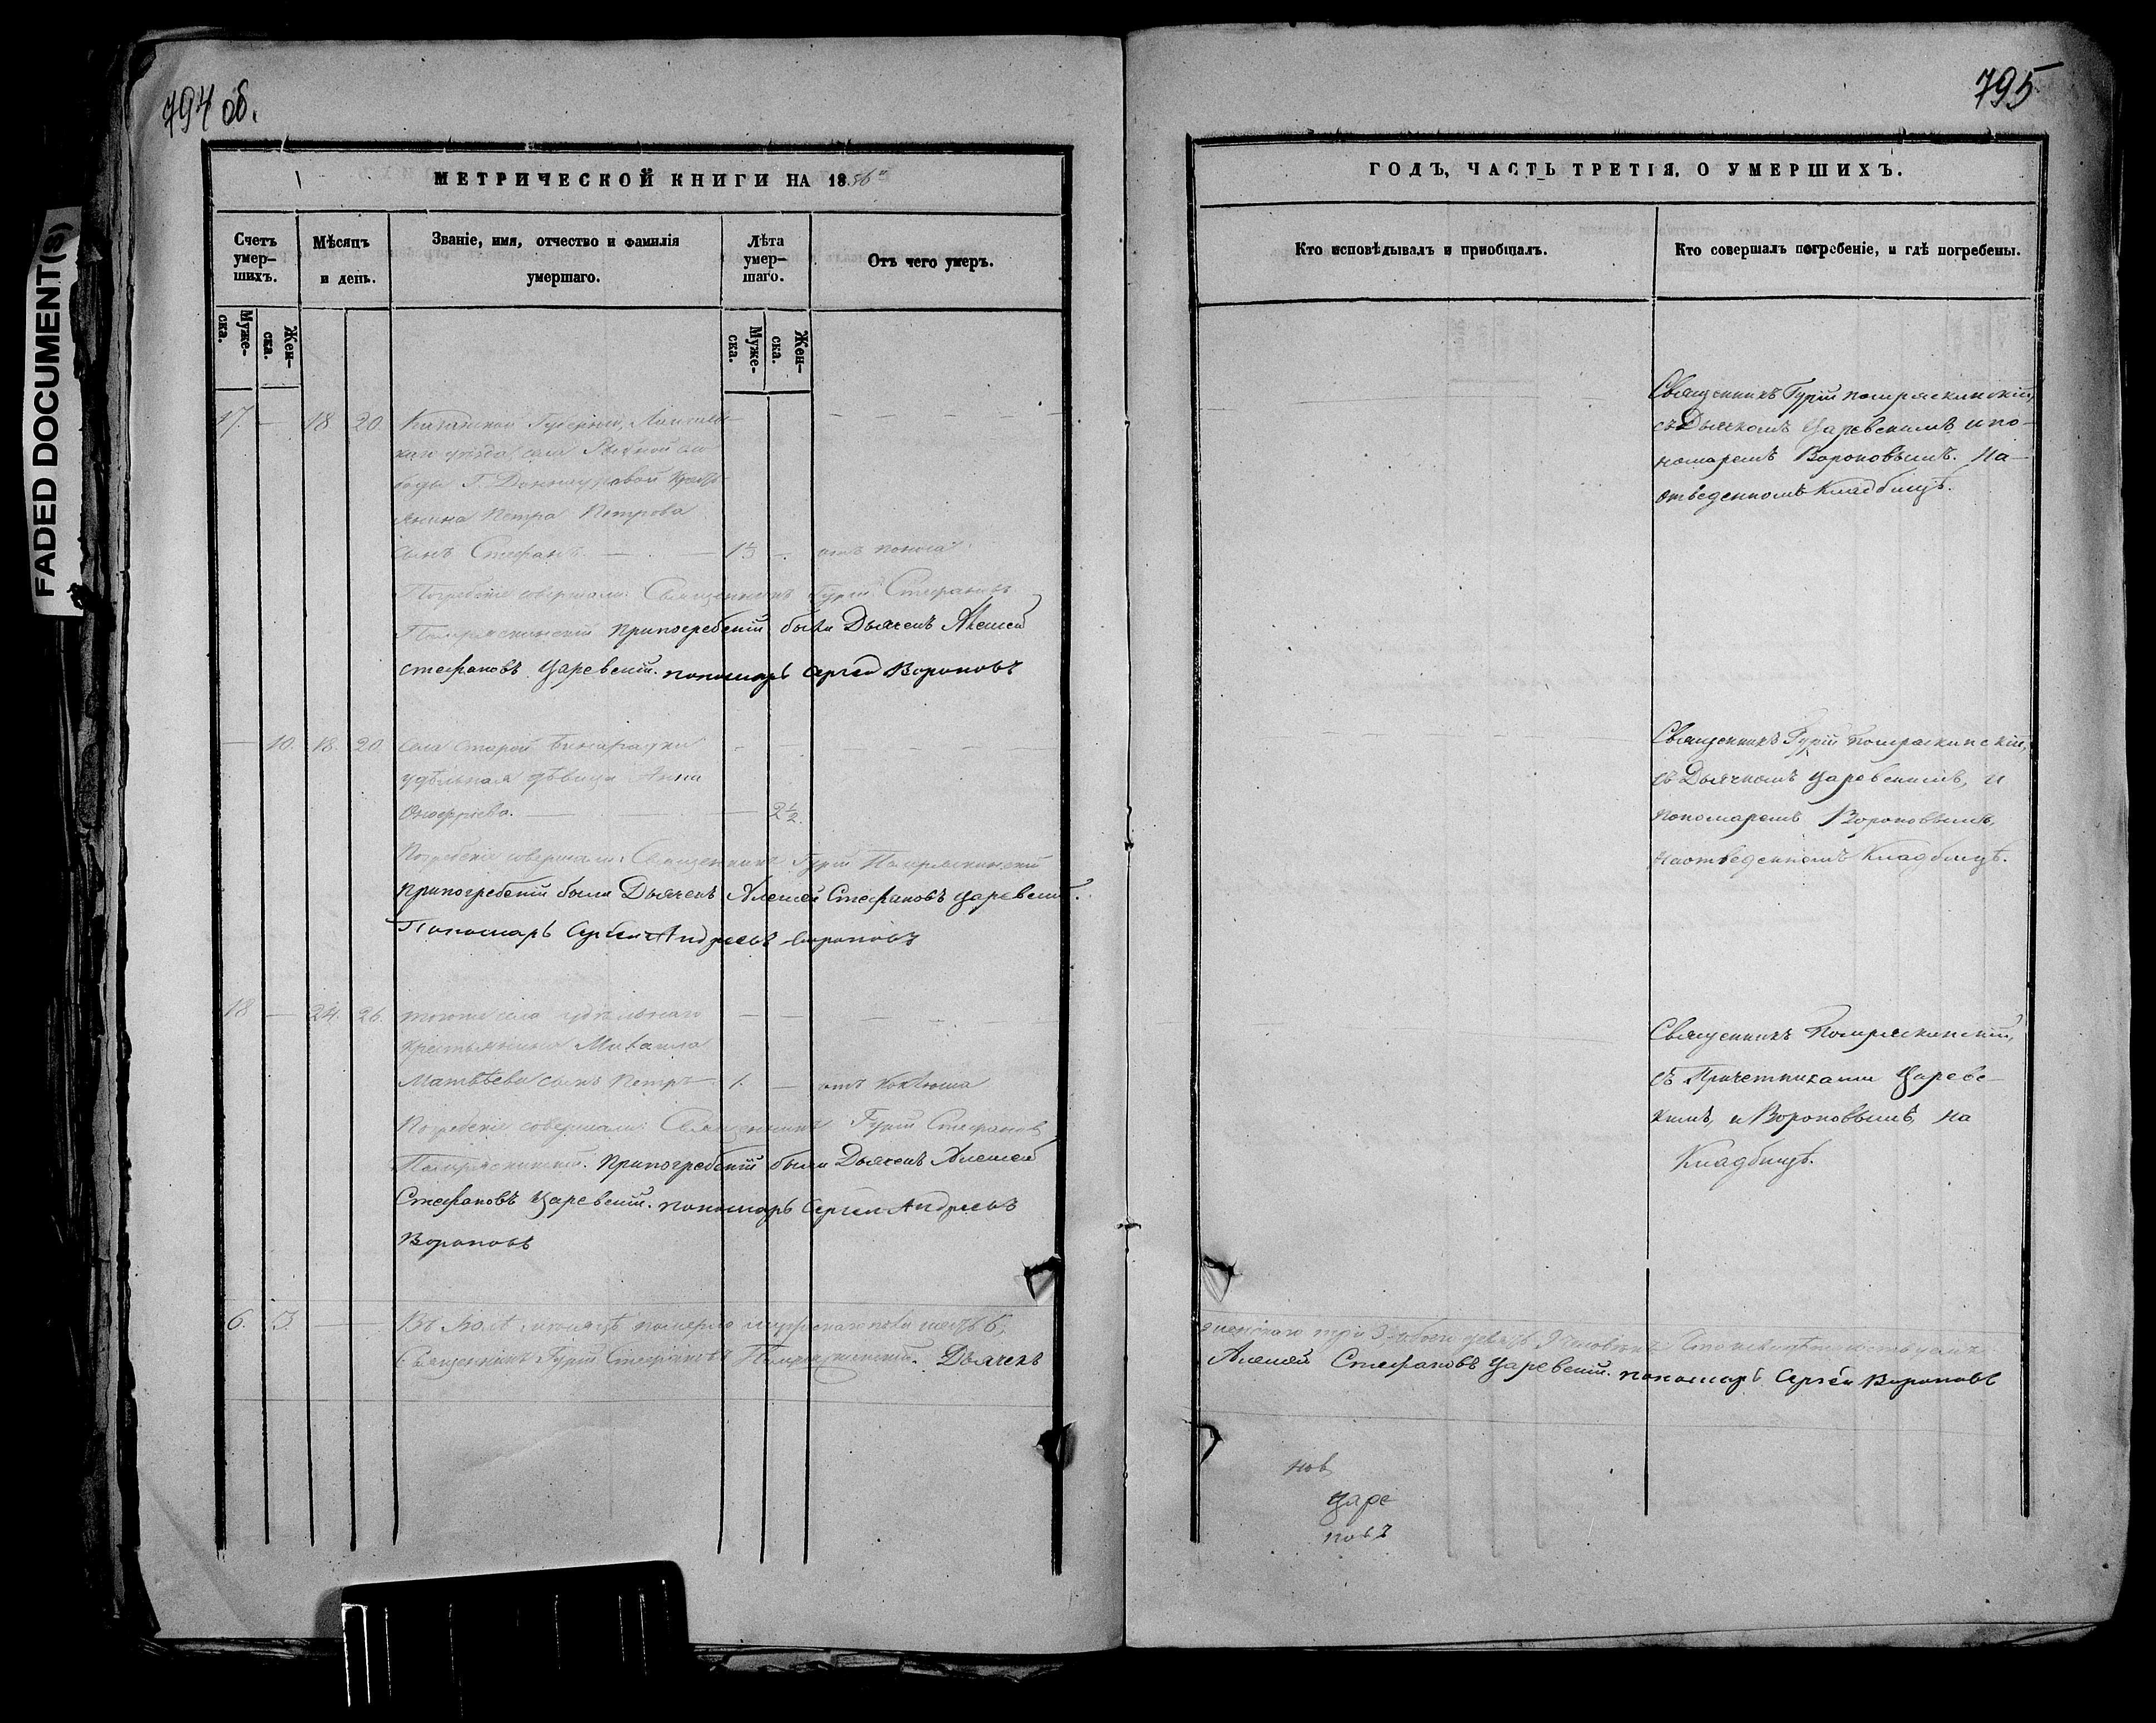 794 об.
795
FADED DOCUMENT(S)
МЕТРИЧЕСКОЙ КНИГИ НА 1856
Счетъ умер-шихъ.
Мѣсяцъ и день.
Званіе, имя, отчество и фамилія умершаго.
Лѣта умер-шаго.
Отъ чего умеръ.
Муже-ска.
Жен-ска.
Муже-ска.
Жен-ска.
17. — 18 20. Казанской Губерніи,
уѣзда села Рыбной сло
боды Г.
янина Петра Петрова
сынъ Стефанъ — — от поноса
Погребеніе совершали: Священникъ Гурій Стефановъ
Помряскинскій припогребеніи были Дьячекъ Алексѣй
Стефановъ Царевскій. пономарь Сергѣй Вороновъ
— 10. 18. 20 села Старой
удѣльная дѣвица Анна
Онофріева. — — 2 1/2.
Погребеніе совершали: Священникъ Гурій Помряскинскій
припогребеніи были Дьячекъ Алексѣй Стефановъ Царевскій.
Пономарь Сергѣй Андреевъ Вороновъ
18 — 24. 26. тогоже села удѣльнаго
крестьянина Михаила
Матвѣева сынъ Петръ 1. — отъ коклюша
Погребеніе совершали: Священникъ Гурій Стефановъ
Помряскинскій. Припогребеніи были Дьячекъ Алексѣй
Стефановъ Царевскій. пономарь Сергѣй Андреевъ
Вороновъ
6. 3. — Въ Іюлѣ мѣсяцѣ померло мужескаго пола шесть 6,
Священникъ Гурій Стефановъ Помряскинскій. Дьячекъ
ГОДЪ, ЧАСТЬ ТРЕТІЯ, О УМЕРШИХЪ.
Кто исповѣдывалъ и пріобщалъ.
Кто совершалъ погребеніе, и гдѣ погребены.
Священникъ Гурій Помряскинскій,
съ Дьячкомъ Царевскимъ и по-
номаремъ Вороновымъ. На
отведенномъ Кладбищѣ.
Священникъ Гурій Помряскинскій,
съ Дьячкомъ Царевскимъ, и
пономаремъ Вороновымъ,
на отведенномъ Кладбищѣ.
Священникъ Помряскинскій,
съ Причетниками Царевс-
кимъ, и Вороновымъ, на
Кладбищѣ.
женскаго три 3, обоего девять 9 человѣкъ.
Алексѣй Стефановъ Царевскій. пономарь Сергѣй Вороновъ
нов
Царе
новъ